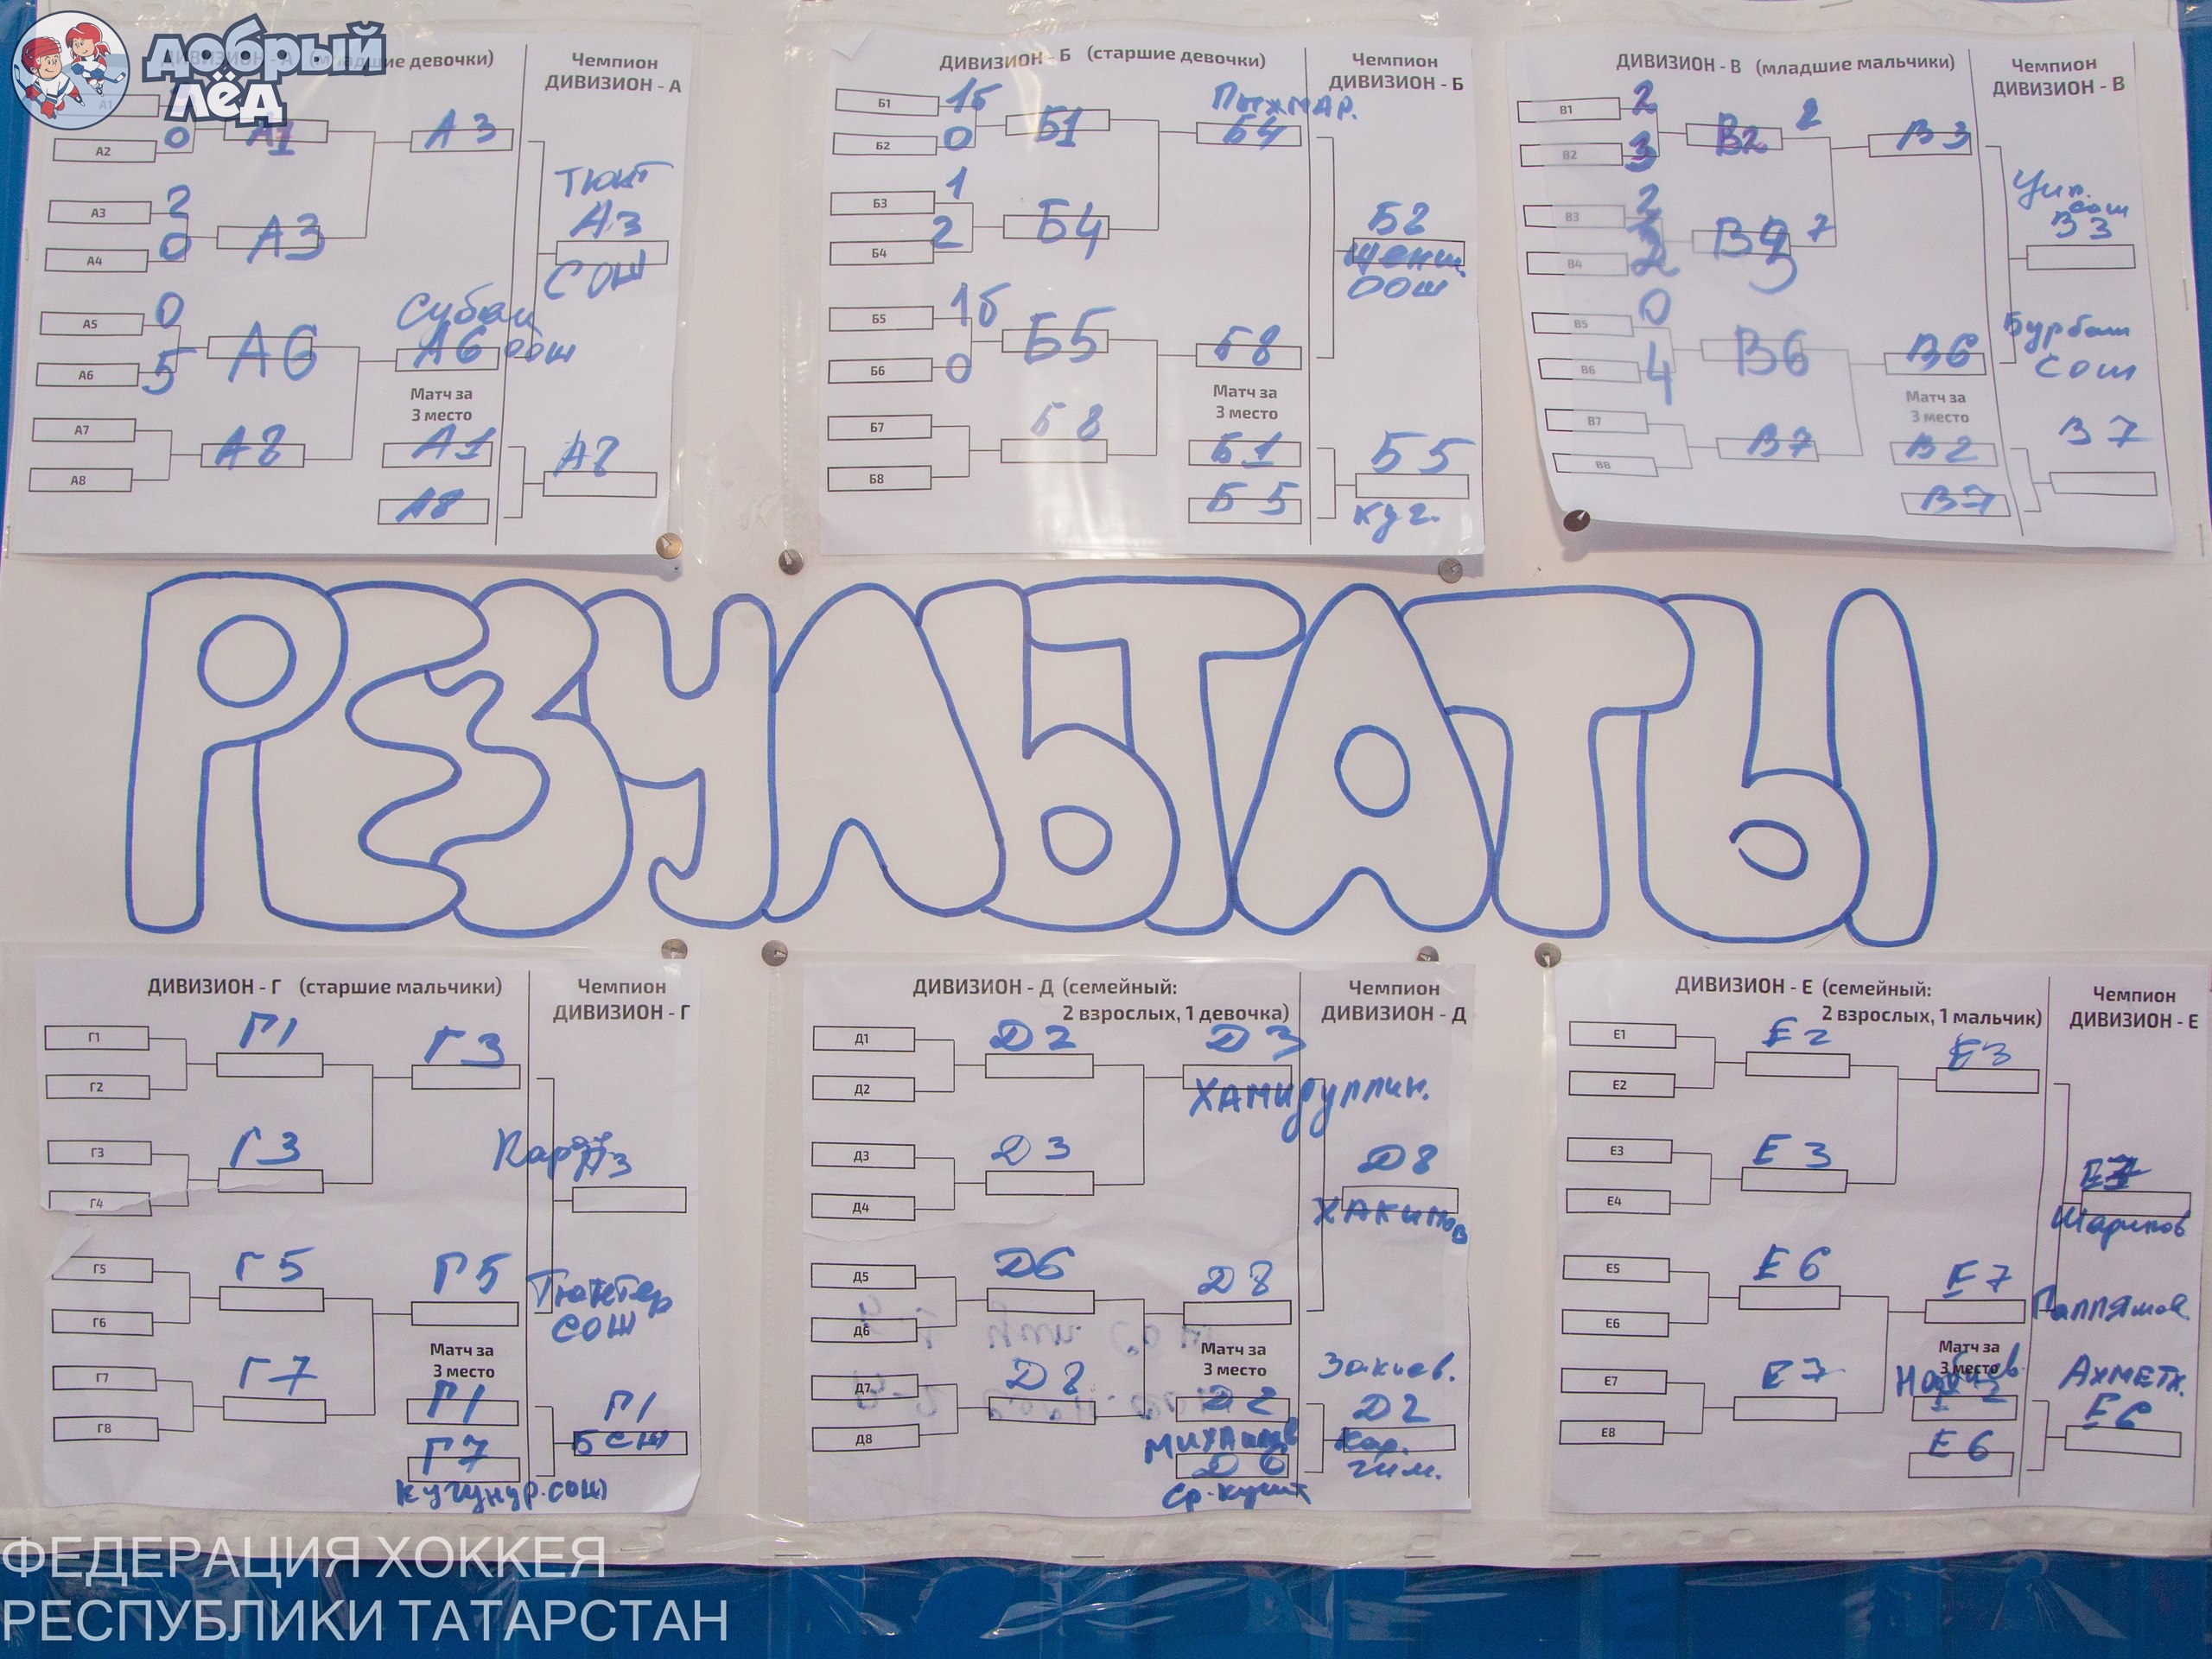 добрый
лёд
девочки)
Чемпион
ДИВИЗИОН - А
А2
0
А1
А3
А3
2
А4
0
А3
Тюнт
А3
СОШ
А5
0
А6
5
А6
Субаш
А6 ООШ
Матч за
3 место
А7
А8
А8
А1
А8
А8
ДИВИЗИОН - Б (старшие девочки)
Чемпион
ДИВИЗИОН - Б
Б1
Б2
0
Б1
Б4
Б3
1
Б4
2
Б4
Б2
ООШ
Б5
Б6
0
Б5
Б8
Матч за
3 место
Б7
Б8
Б8
Б1
Б5
Б5
куг.
ДИВИЗИОН - В (младшие мальчики)
Чемпион
ДИВИЗИОН - В
В1
2
В2
3
В2
2
В3
В3
2
В4
7
В3
В5
0
В6
4
В6
В6
Бурбаш
СОШ
Матч за
3 место
В7
В8
В7
В2
В7
В7
РЕЗУЛЬТАТЫ
ДИВИЗИОН - Г (старшие мальчики)
Чемпион
ДИВИЗИОН - Г
Г1
Г2
Г1
Г3
Г3
Г4
Г3
Г5
Г6
Г5
Г5
СОШ
Матч за
3 место
Г7
Г8
Г7
Г1
Г7
Кугунур.сош
Г1
БСШ
ДИВИЗИОН - Д (семейный:
2 взрослых, 1 девочка)
Чемпион
ДИВИЗИОН - Д
Д1
Д2
Д2
Д3
Хамидуллин.
Д3
Д4
Д3
Д8
ХАКИМОВ
Д5
Д6
Д6
Д8
Матч за
3 место
Д7
Д8
Д8
Д2
Д6
Закиев.
Д2
Кар.
гим.
ДИВИЗИОН - Е (семейный:
2 взрослых, 1 мальчик)
Чемпион
ДИВИЗИОН - Е
Е1
Е2
Е2
Е3
Е3
Е4
Е3
Шарипов
Е5
Е6
Е6
Е7
Галлямов
Матч за
3 место
Е7
Е8
Е7
Е6
Ахметх.
Е6
ФЕДЕРАЦИЯ ХОККЕЯ
РЕСПУБЛИКИ ТАТАРСТАН